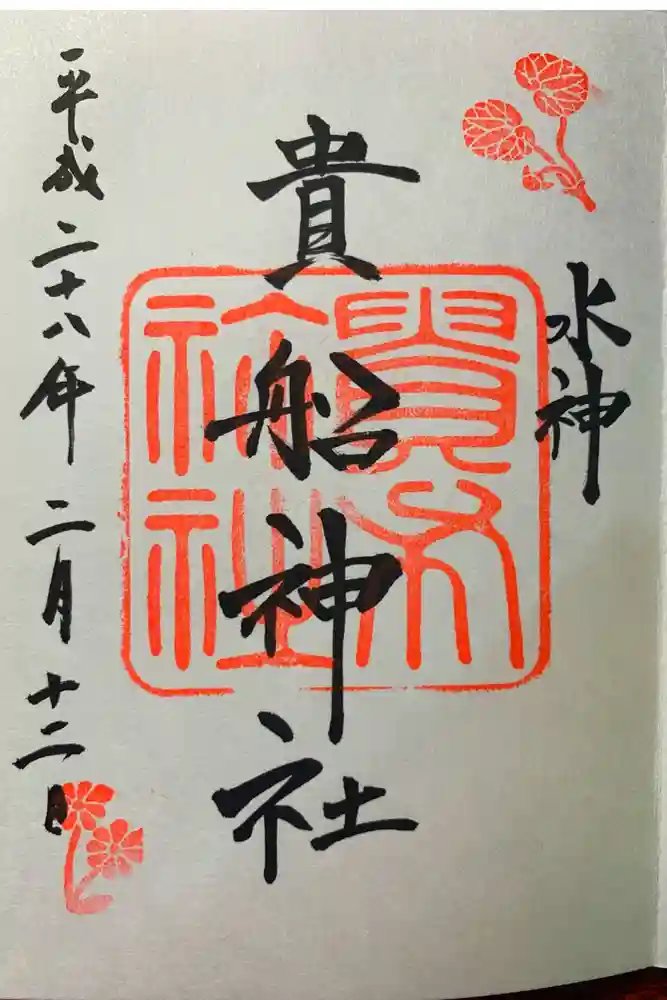 水神
貴船神社
平成二十八年二月十二日